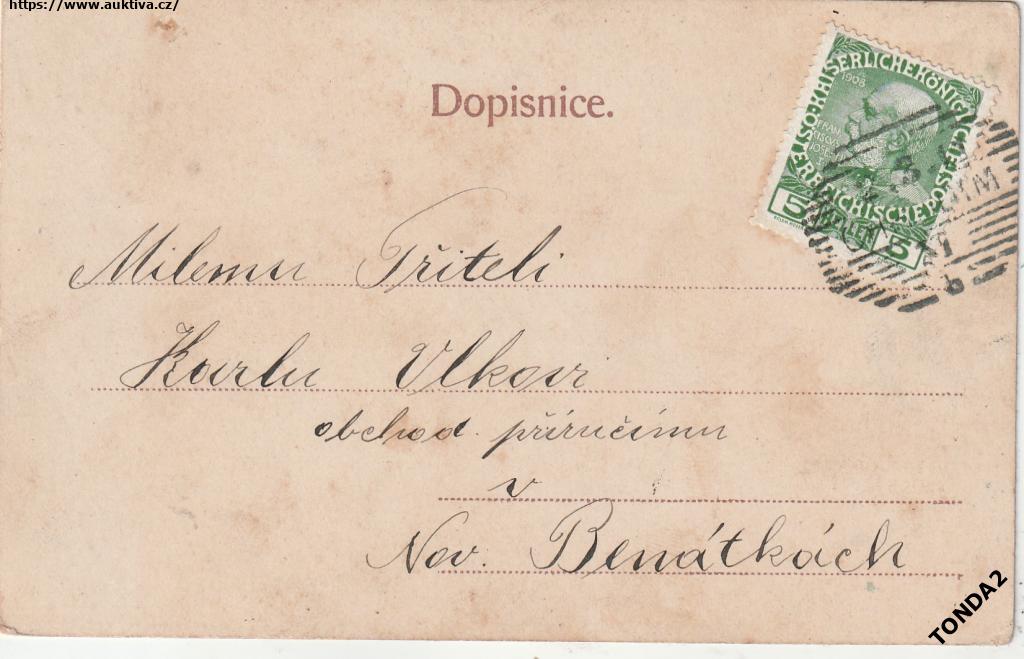 https://www.auktiva.cz/
Dopisnice.
KAISERLICHEKÖNIGLICHE OESTERREICHISCHE POST
1908
5 5
Milemu Příteli
Karlu Vlkovi
obchod. příručímu
v
Nov. Benátkách
TONDA2